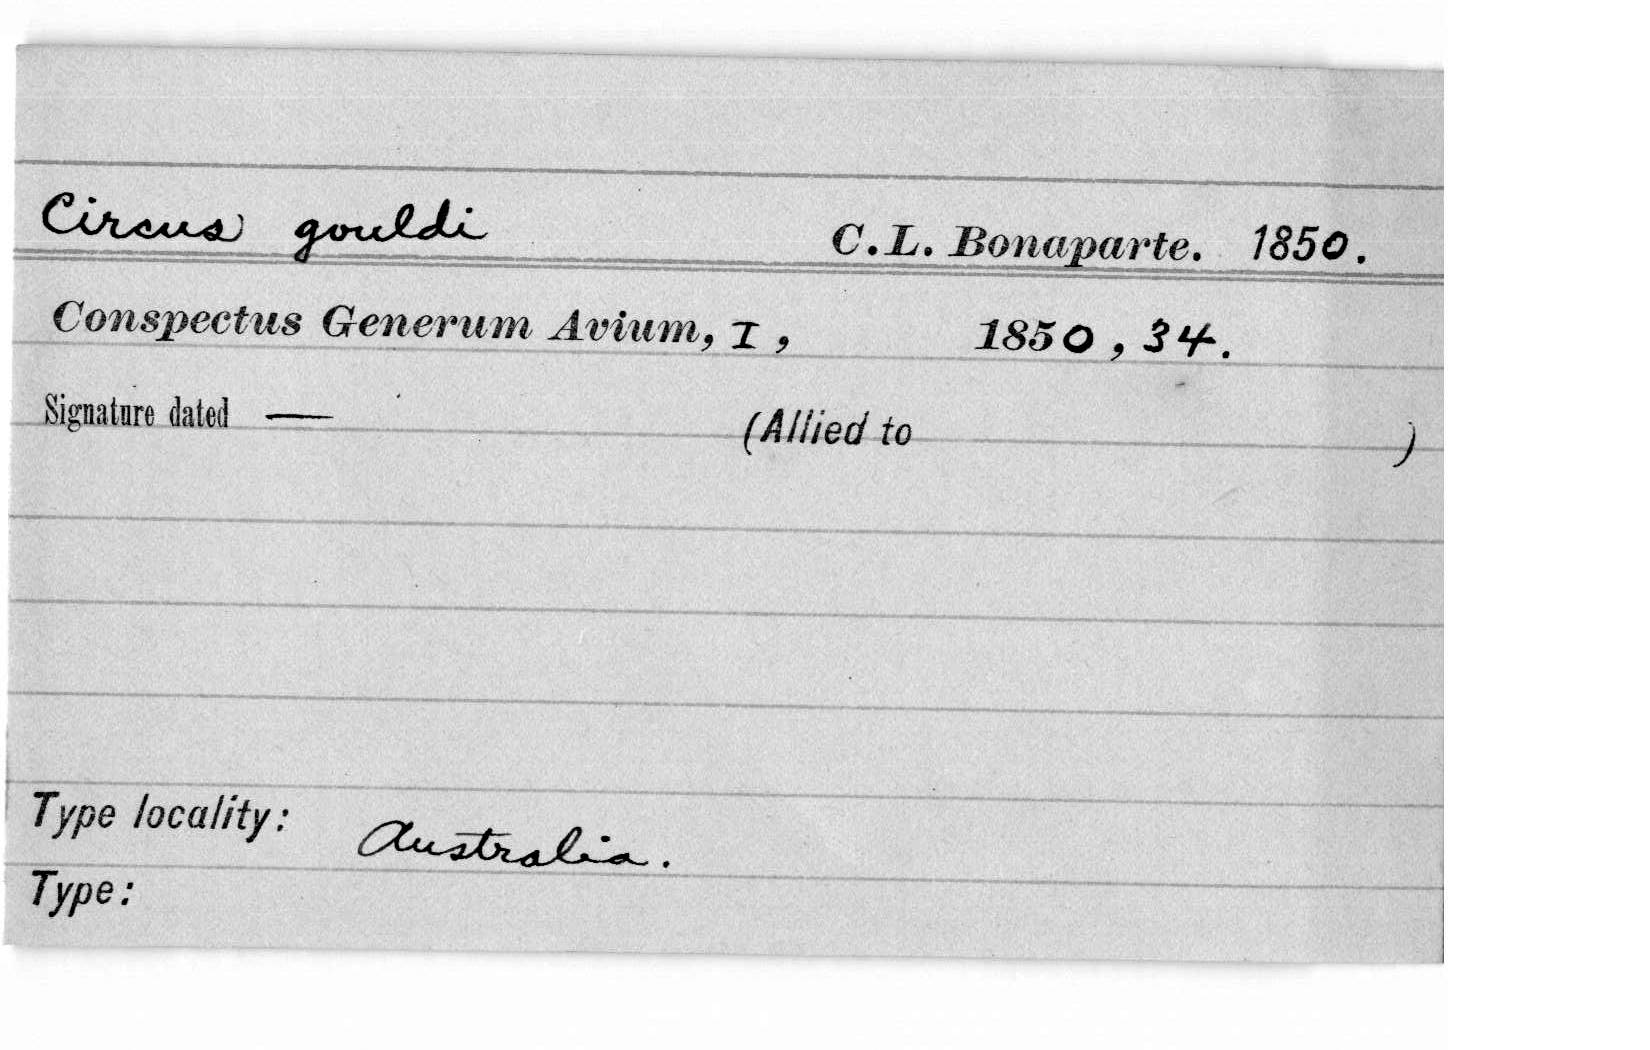 Circus gouldi C.L. Bonaparte. 1850.
Conspectus Generum Avium, I, 1850, 34.
Signature dated — (Allied to )
Type locality: Australia.
Type: